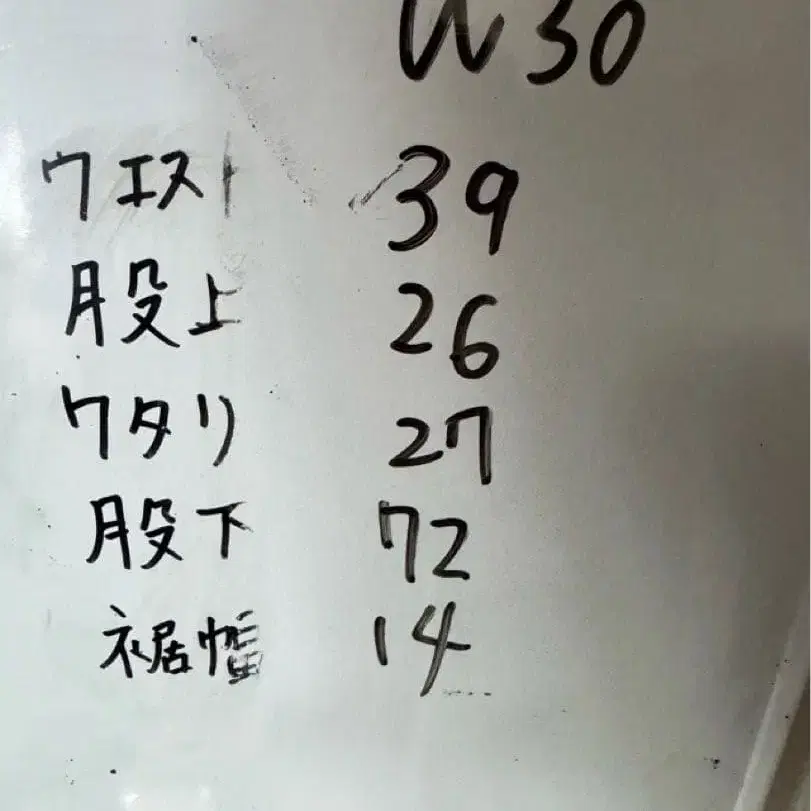 W30
ウエスト 39
股上 26
ワタリ 27
股下 72
裾幅 14